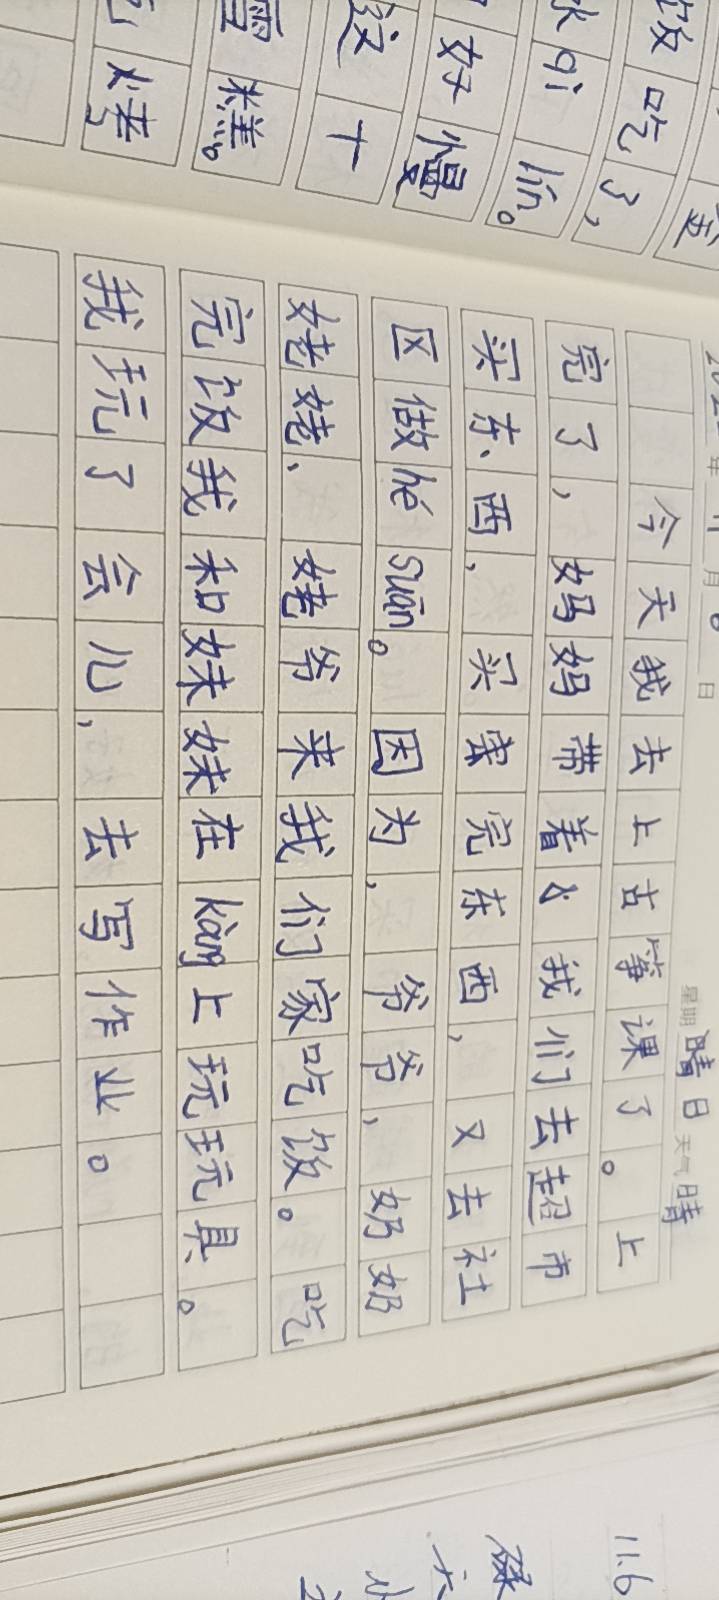 饭吃了,
qi lín。
好慢
这十
雪糕。
烤
年 月 日 星期 日 天气 晴
今天我去上古筝课了。上
完了,妈妈带着我们去超市
买东、西,买完东西,又去社
区做hé suān。因为,爷爷,奶奶
姥姥、姥爷来我们家吃饭。吃
完饭我和妹妹在kàng上玩玩具。
我玩了会儿,去写作业。
11.6